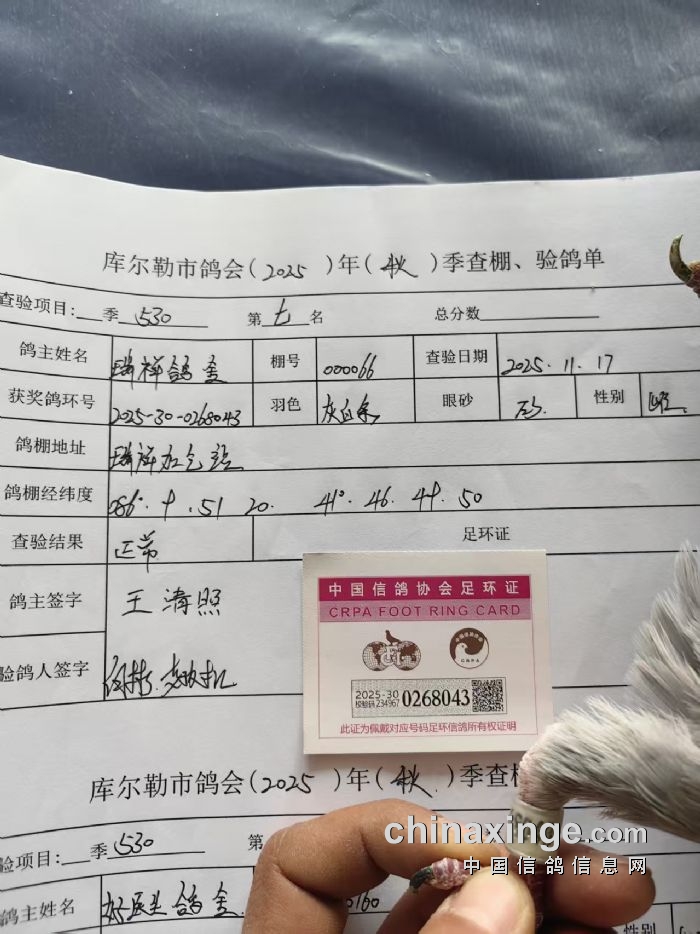 库尔勒市鸽会(2025 )年(秋 )季查棚、验鸽单
查验项目: 季 530 第 七 名 总分数
鸽主姓名 瑞祥鸽舍 棚号 000066 查验日期 2025.11.17
获奖鸽环号 2025-30-0268043 羽色 灰白条 眼砂 性别 雄
鸽棚地址 瑞祥加气站
鸽棚经纬度 086°. 9 .51 20. 41°. 46. 44. 50
查验结果 正常 足环证
鸽主签字 王清照
验鸽人签字
中国信鸽协会足环证
CRPA FOOT RING CARD
2025-30
校验码234967
0268043
此证为佩戴对应号码足环信鸽所有权证明
库尔勒市鸽会(2025 )年(秋 )季查
验项目: 季 530 第
鸽主姓名 好医生鸽舍 0160 性别
chinaxinge.com
中国信鸽信息网